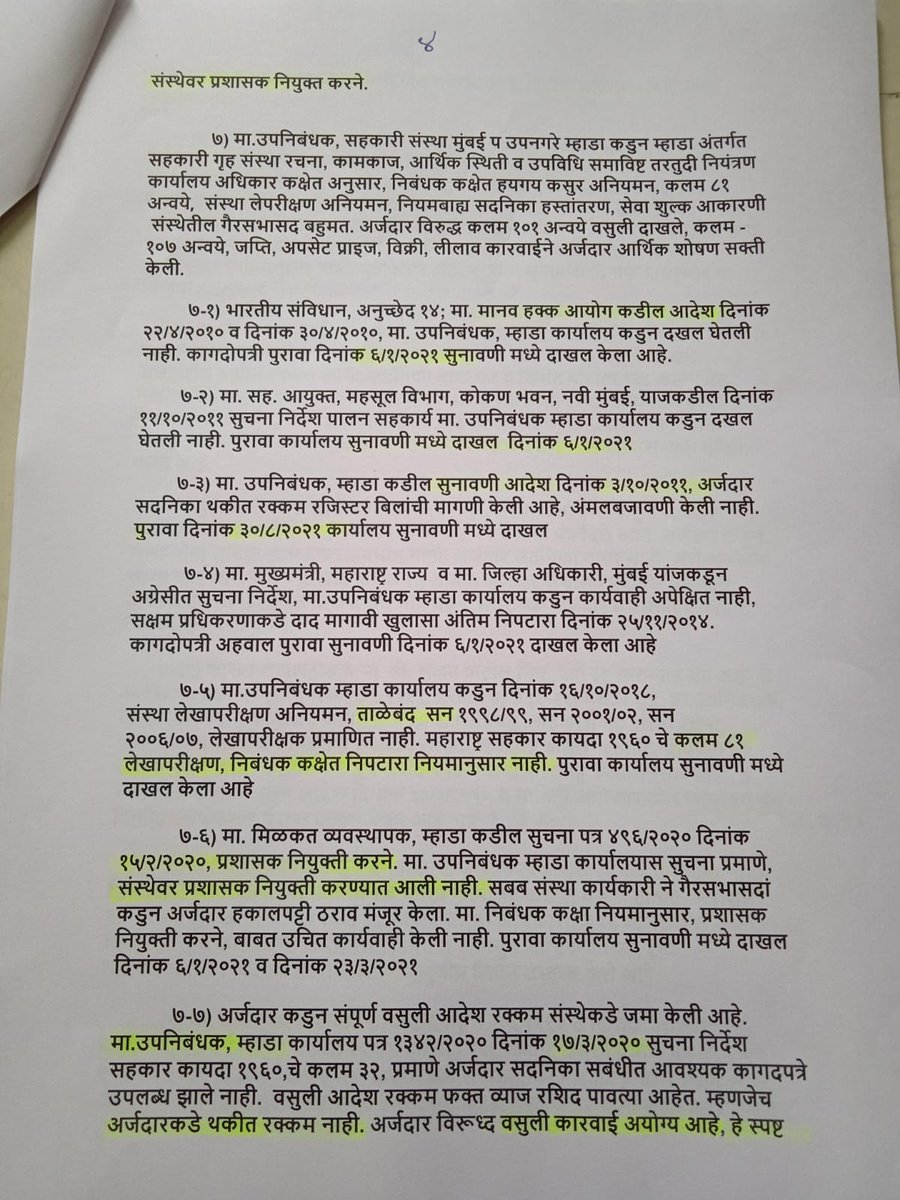 ४
संस्थेवर प्रशासक नियुक्त करने.
७) मा.उपनिबंधक, सहकारी संस्था मुंबई प उपनगरे म्हाडा कडुन म्हाडा अंतर्गत
सहकारी गृह संस्था रचना, कामकाज, आर्थिक स्थिती व उपविधि समाविष्ट तरतुदी नियंत्रण
कार्यालय अधिकार कक्षेत अनुसार, निबंधक कक्षेत हयगय कसुर अनियमन, कलम ८१
अन्वये, संस्था लेपरीक्षण अनियमन, नियमबाह्य सदनिका हस्तांतरण, सेवा शुल्क आकारणी
संस्थेतील गैरसभासद बहुमत. अर्जदार विरुद्ध कलम १०१ अन्वये वसुली दाखले, कलम -
१०७ अन्वये, जप्ति, अपसेट प्राइज, विक्री, लीलाव कारवाईने अर्जदार आर्थिक शोषण सक्ती
केली.
७-१) भारतीय संविधान, अनुच्छेद १४; मा. मानव हक्क आयोग कडील आदेश दिनांक
२२/४/२०१० व दिनांक ३०/४/२०१०, मा. उपनिबंधक, म्हाडा कार्यालय कडुन दखल घेतली
नाही. कागदोपत्री पुरावा दिनांक ६/१/२०२१ सुनावणी मध्ये दाखल केला आहे.
७-२) मा. सह. आयुक्त, महसूल विभाग, कोकण भवन, नवी मुंबई, याजकडील दिनांक
११/१०/२०११ सुचना निर्देश पालन सहकार्य मा. उपनिबंधक म्हाडा कार्यालय कडुन दखल
घेतली नाही. पुरावा कार्यालय सुनावणी मध्ये दाखल दिनांक ६/१/२०२१
७-३) मा. उपनिबंधक, म्हाडा कडील सुनावणी आदेश दिनांक ३/१०/२०११, अर्जदार
सदनिका थकीत रक्कम रजिस्टर बिलांची मागणी केली आहे, अंमलबजावणी केली नाही.
पुरावा दिनांक ३०/८/२०२१ कार्यालय सुनावणी मध्ये दाखल
७-४) मा. मुख्यमंत्री, महाराष्ट्र राज्य व मा. जिल्हा अधिकारी, मुंबई यांजकडून
अग्रेसीत सुचना निर्देश, मा.उपनिबंधक म्हाडा कार्यालय कडुन कार्यवाही अपेक्षित नाही,
सक्षम प्रधिकरणाकडे दाद मागावी खुलासा अंतिम निपटारा दिनांक २५/११/२०१४.
कागदोपत्री अहवाल पुरावा सुनावणी दिनांक ६/१/२०२१ दाखल केला आहे
७-५) मा.उपनिबंधक म्हाडा कार्यालय कडुन दिनांक १६/१०/२०१८,
संस्था लेखापरीक्षण अनियमन, ताळेबंद सन १९९८/९९, सन २००१/०२, सन
२००६/०७, लेखापरीक्षक प्रमाणित नाही. महाराष्ट्र सहकार कायदा १९६० चे कलम ८१
लेखापरीक्षण, निबंधक कक्षेत निपटारा नियमानुसार नाही. पुरावा कार्यालय सुनावणी मध्ये
दाखल केला आहे
७-६) मा. मिळकत व्यवस्थापक, म्हाडा कडील सुचना पत्र ४९६/२०२० दिनांक
१५/२/२०२०, प्रशासक नियुक्ती करने. मा. उपनिबंधक म्हाडा कार्यालयास सुचना प्रमाणे,
संस्थेवर प्रशासक नियुक्ती करण्यात आली नाही. सबब संस्था कार्यकारी ने गैरसभासदां
कडुन अर्जदार हकालपट्टी ठराव मंजूर केला. मा. निबंधक कक्षा नियमानुसार, प्रशासक
नियुक्ती करने, बाबत उचित कार्यवाही केली नाही. पुरावा कार्यालय सुनावणी मध्ये दाखल
दिनांक ६/१/२०२१ व दिनांक २३/३/२०२१
७-७) अर्जदार कडुन संपूर्ण वसुली आदेश रक्कम संस्थेकडे जमा केली आहे.
मा.उपनिबंधक, म्हाडा कार्यालय पत्र १३४२/२०२० दिनांक १७/३/२०२० सुचना निर्देश
सहकार कायदा १९६०,चे कलम ३२, प्रमाणे अर्जदार सदनिका सबंधीत आवश्यक कागदपत्रे
उपलब्ध झाले नाही. वसुली आदेश रक्कम फक्त व्याज रशिद पावत्या आहेत. म्हणजेच
अर्जदारकडे थकीत रक्कम नाही. अर्जदार विरूध्द वसुली कारवाई अयोग्य आहे, हे स्पष्ट